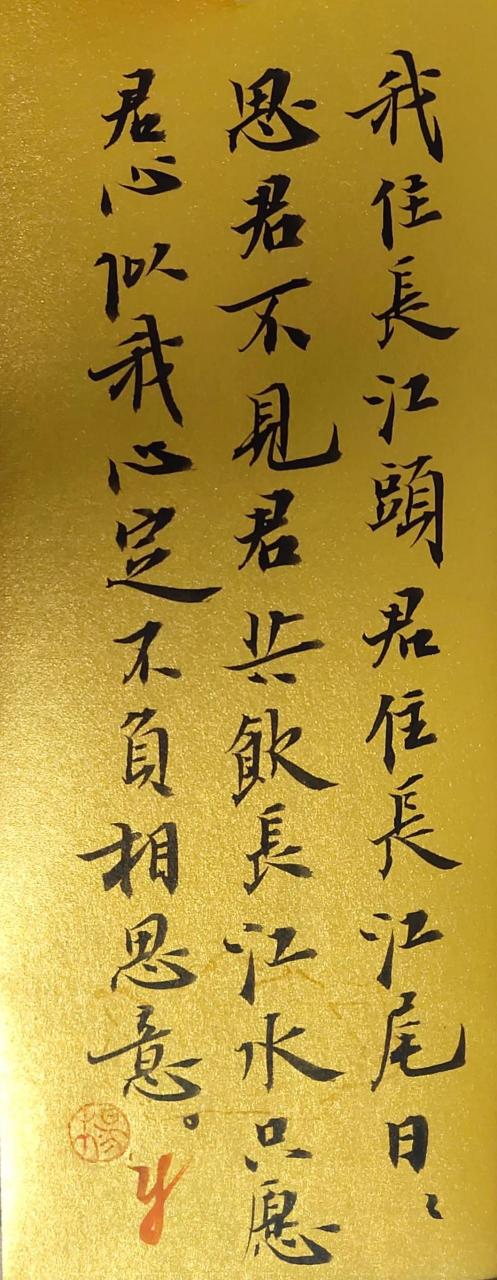 我住長江頭君住長江尾日〻
思君不見君共飲長江水只愿
君心似我心定不負相思意。